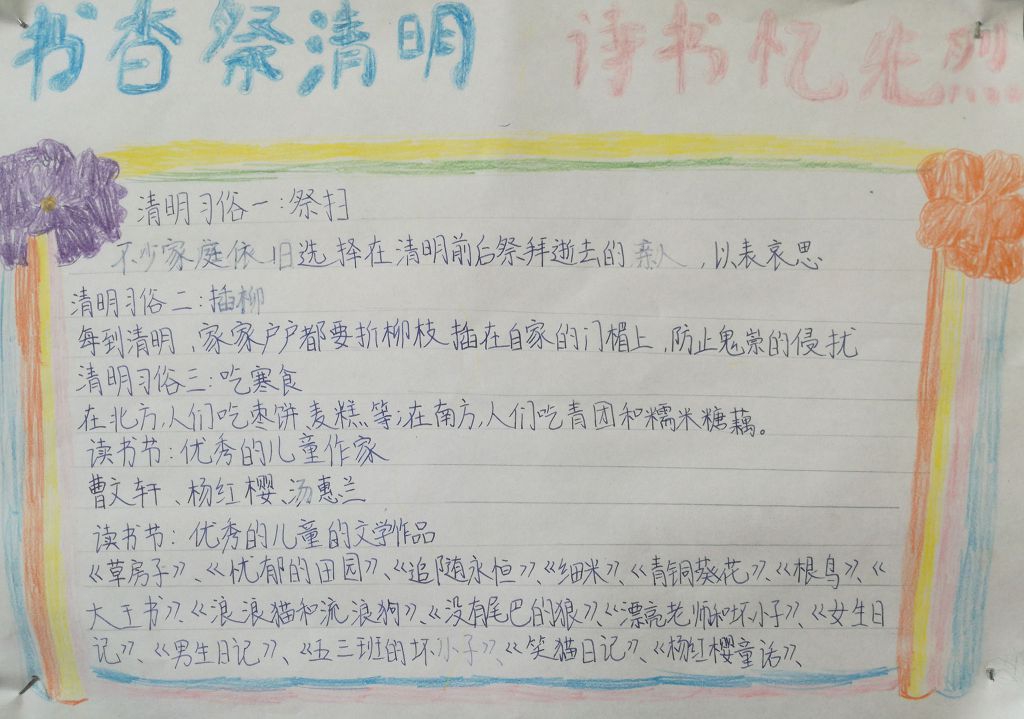 书香祭清明 诗书忆先烈……
清明习俗一:祭扫
不少家庭依旧选择在清明前后祭拜逝去的亲人,以表哀思
清明习俗二:插柳
每到清明、家家户户都要折柳枝插在自家的门楣上,防止鬼祟的侵扰
清明习俗三:吃寒食
在北方,人们吃枣饼、麦糕等;在南方,人们吃青团和糯米糖藕。
读书节:优秀的儿童作家
曹文轩、杨红樱、汤惠兰
读书节:优秀的儿童的文学作品
《草房子》、《忧郁的田园》、《追随永恒》、《细米》、《青铜葵花》、《根鸟》、《
大王书》、《浪浪猫和流浪狗》、《没有尾巴的狼》、《漂亮老师和坏小子》、《女生日
记》、《男生日记》、《五三班的坏小子》、《笑猫日记》、《杨红樱童话》、